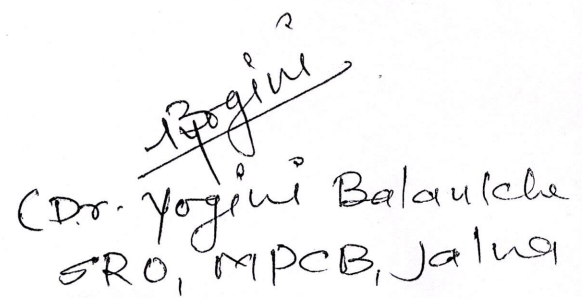 Yogini
(Dr. Yogini Balaulche
SRO, MPCB, Jalna